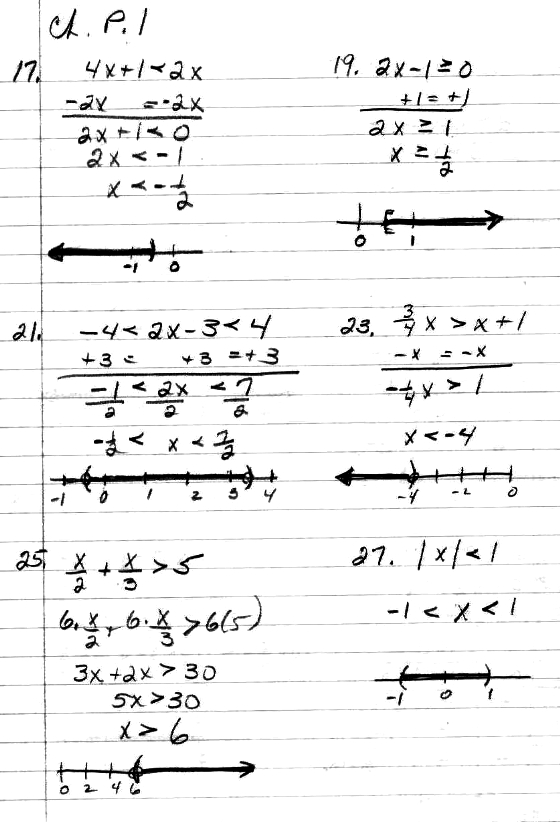 Ch. P.1
17. 4x+1<2x
-2x =-2x
2x+1<0
2x<-1
x<-1/2
-1 0
19. 2x-1≥0
+1=+1
2x≥1
x≥1/2
0 1
21. -4<2x-3<4
+3= +3=+3
-1/2 < 2x/2 < 7/2
-1/2 < x < 7/2
-1 0 1 2 3 4
23. 3/4 x > x+1
-x =-x
-1/4 x > 1
x<-4
-4 -2 0
25 x/2 + x/3 > 5
6·x/2 + 6·x/3 > 6(5)
3x+2x>30
5x>30
x>6
0 2 4 6
27. |x|<1
-1<x<1
-1 0 1